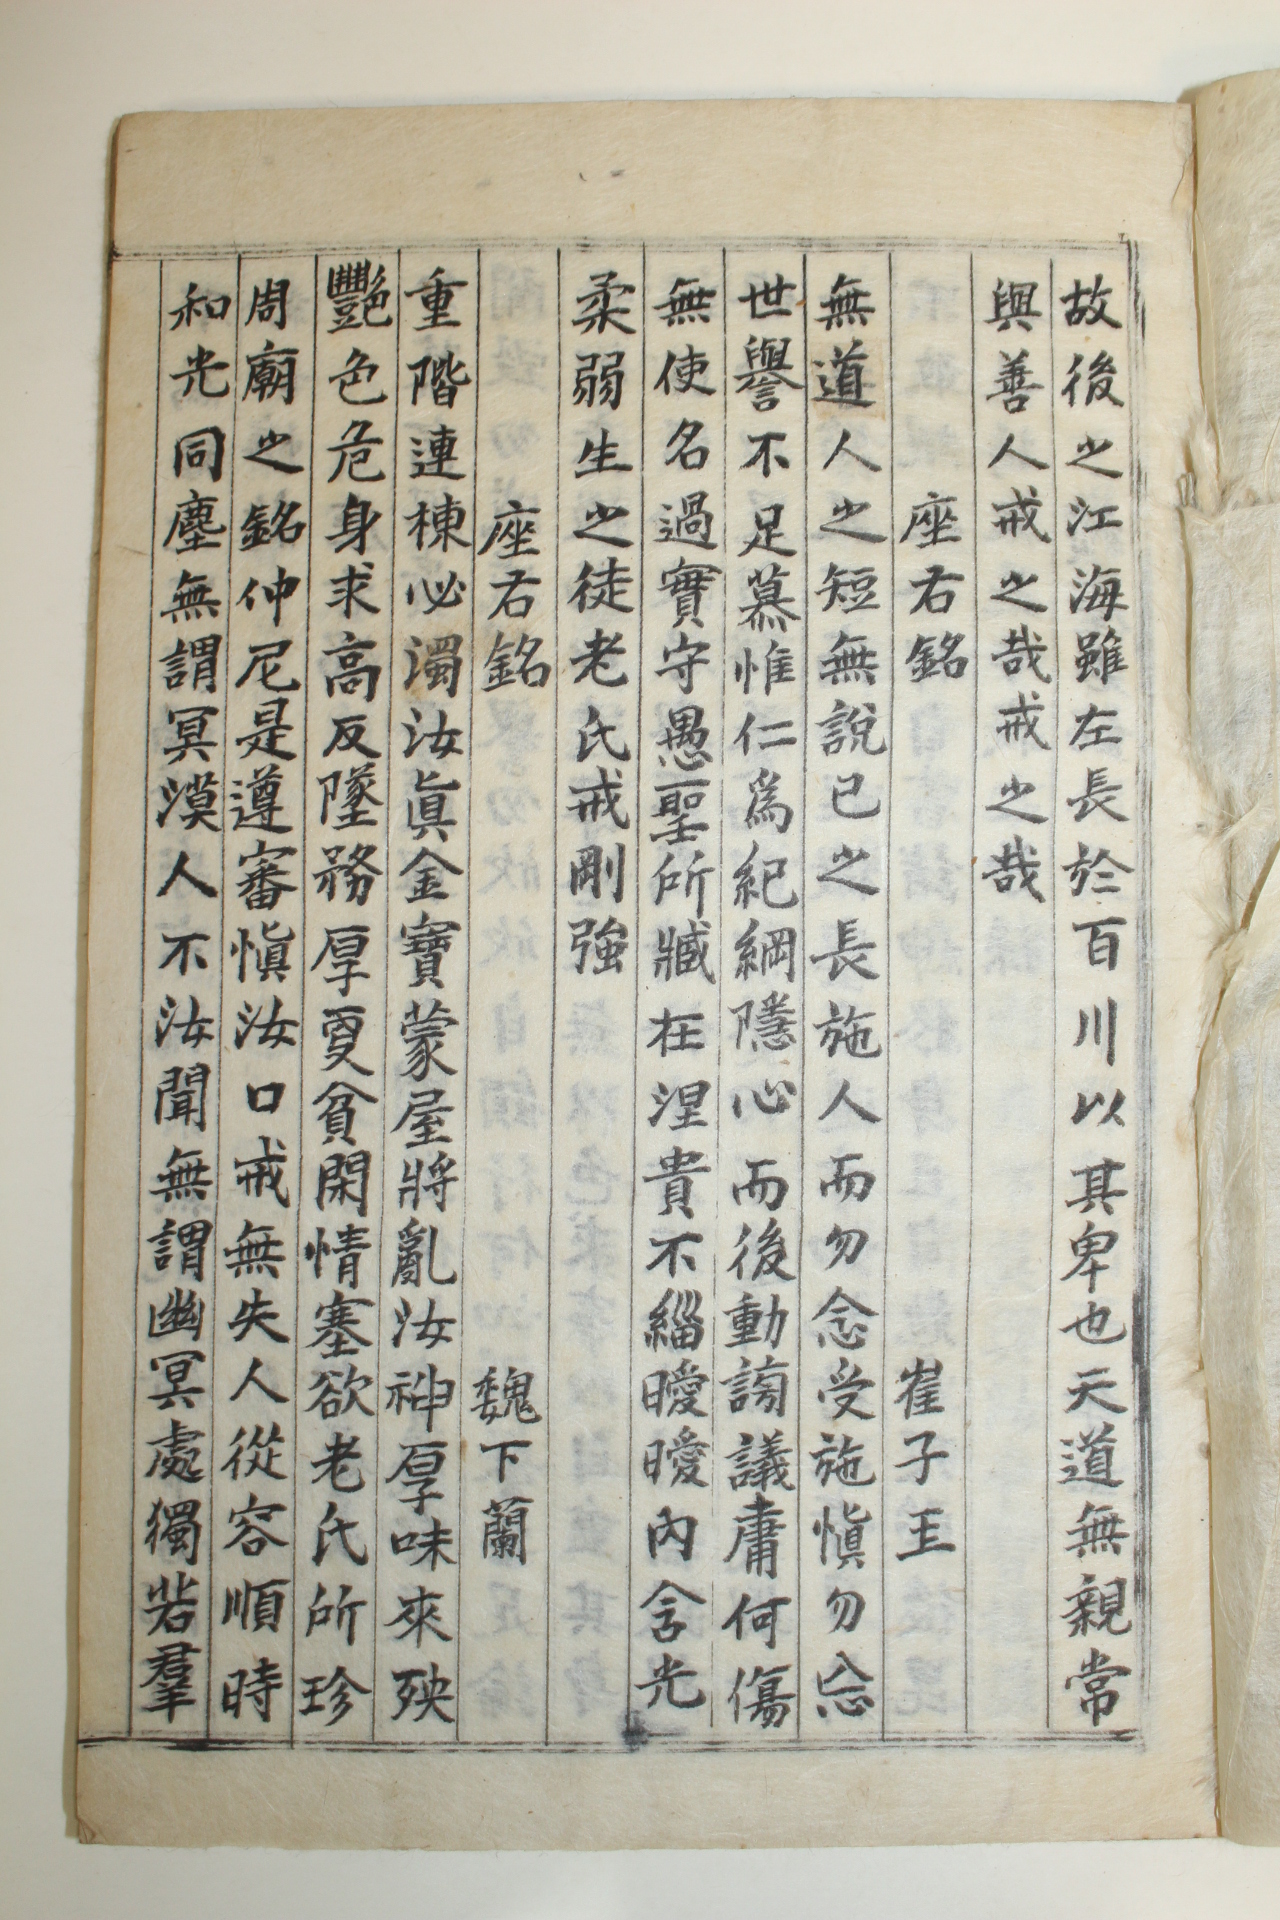 故後之江海雖左長於百川以其卑也天道無親常
與善人戒之哉戒之哉
座右銘 崔子玉
無道人之短無說已之長施人而勿念受施愼勿忘
世譽不足慕惟仁爲紀綱隱心而後動謗議庸何傷
無使名過實守愚聖所臧在涅貴不緇曖曖內含光
柔弱生之徒老氏戒剛強
座右銘 魏下蘭
重階連棟必濁汝眞金寶蒙屋將亂汝神厚味來殃
艶色危身求高反墜務厚更貧閑情塞欲老氏所珍
周廟之銘仲尼是遵審愼汝口戒無失人從容順時
和光同塵無謂冥漠人不汝聞無謂幽冥處獨若羣